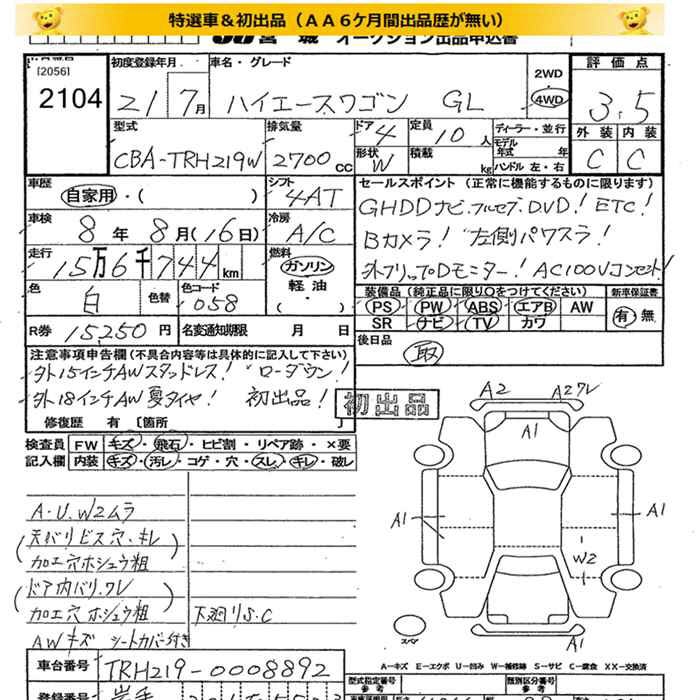 特選車＆初出品（ＡＡ６ケ月間出品歴が無い）
宮城 オークション出品申込書
[2056]
2104
初度登録年月
21 / 7月
車名・グレード
ハイエースワゴン GL
2WD
4WD
評価点
3.5
外装 内装
C C
型式
CBA-TRH219W
排気量
2700cc
ドア 4
形状 W
定員 10人
積載 kg
ディーラー・並行
モデル年式 年
ハンドル 左・右
車歴
自家用・( )
シフト
4AT
車検
8年 8月(16日)
冷房
A/C
走行
15万6千744km
燃料
ガソリン
軽油
・( )
色
白
色替
色コード
058
R券 15,250円
名変通知期限 月 日
セールスポイント（正常に機能するものに限ります）
GHDDナビ.フルセブ.DVD! ETC!
Bカメラ! 左側パワスラ!
外フリップDモニター! AC100Vコンセント!
装備品（純正品に限り○をつけてください）
PS PW ABS エアB AW
SR ナビ TV カワ
新車保証書
有 無
後日品
取
注意事項申告欄（不具合内容等は具体的に記入して下さい）
外15インチAWスタッドレス! ローダウン!
外18インチAW夏タイヤ! 初出品!
初出品
修復歴 有 〔箇所 〕
検査員記入欄
FW キズ・飛石・ヒビ割・リペア跡・×要
内装 キズ・汚レ・コゲ・穴・スレ・キレ・破レ
A・U.W2ムラ
天バリビス穴.キレ
加工穴ホシュウ粗
ドア内バリ.ワレ
加工穴ホシュウ粗
下廻りS.C
AWキズ シートカバー付き
A2
A2ワレ
A1
A1
A1
W2
A1
スペア
A－キズ E－エクボ U－凹み W－補修跡 S－サビ C－腐食 XX－交換済
車台番号
TRH219-0008892
型式指定番号
参考
類別区分番号
参考
登録番号
岩手